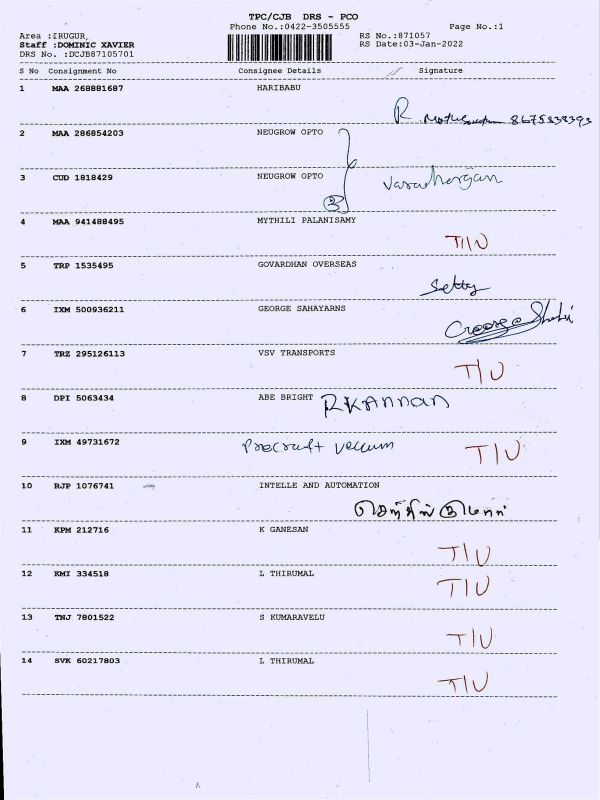 TPC/CJB DRS - PCO
Phone No.:0422-3505555 Page No.:1
Area :IRUGUR, RS No.:871057
Staff :DOMINIC XAVIER RS Date:03-Jan-2022
DRS No. :DCJB87105701
S No Consignment No Consignee Details Signature
1 MAA 268881687 HARIBABU
R 8675838393
2 MAA 286854203 NEUGROW OPTO
3 CUD 1818429 NEUGROW OPTO
2
4 MAA 941488495 MYTHILI PALANISAMY
T/U
5 TRP 1535495 GOVARDHAN OVERSEAS
6 IXM 500936211 GEORGE SAHAYARNS
George
7 TRZ 295126113 VSV TRANSPORTS
T/U
8 DPI 5063434 ABE BRIGHT RKANNAN
9 IXM 49731672 Precraft vaccum T/U
10 RJP 1076741 INTELLE AND AUTOMATION
செந்தில்குமார்
11 KPM 212716 K GANESAN
T/U
12 KMI 334518 L THIRUMAL
T/U
13 TNJ 7801522 S KUMARAVELU
T/U
14 SVK 60217803 L THIRUMAL
T/U